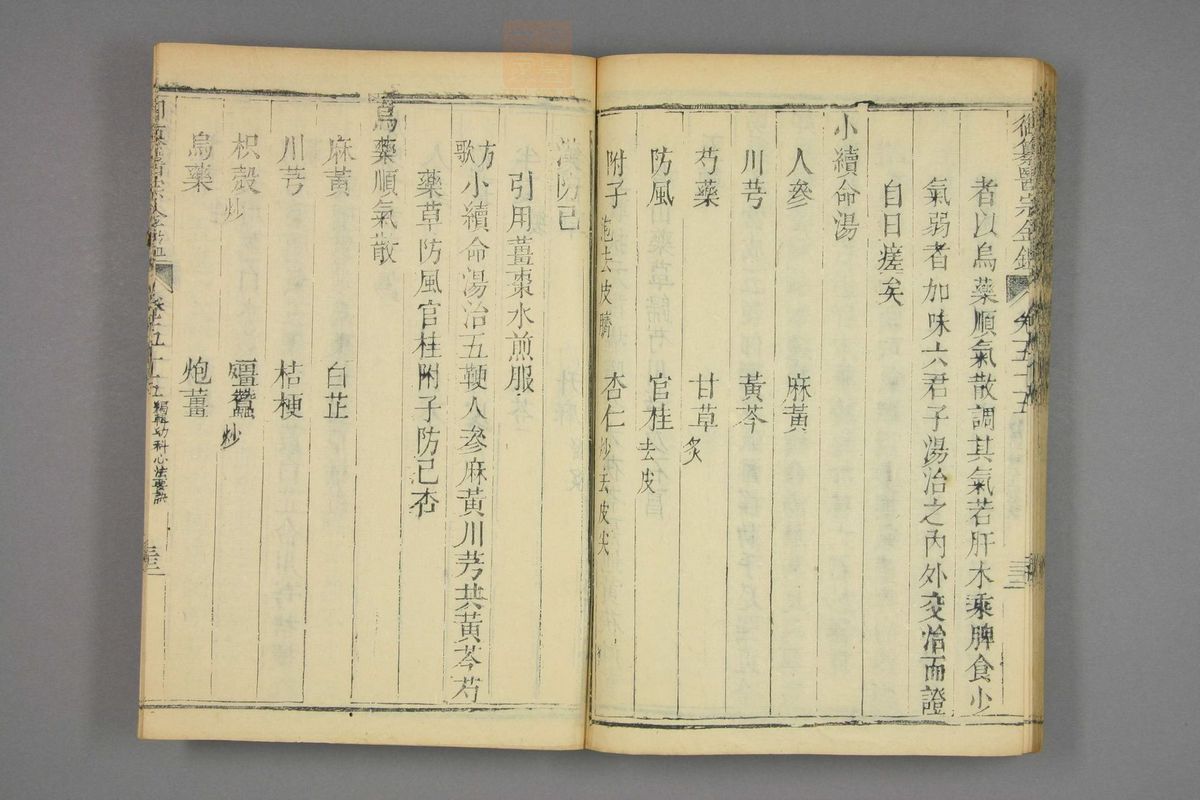 御纂醫宗金鑑 卷五十五
者以烏藥順氣散調其氣若肝木乘脾食少
氣弱者加味六君子湯治之內外交治而證
自日瘥矣
小續命湯
人參 麻黃
川芎 黃芩
芍藥 甘草炙
防風 官桂去皮
附子炮去皮臍 杏仁炒去皮尖
漢防己
引用薑棗水煎服
方歌 小續命湯治五鞕人參麻黃川芎共黃芩芍
藥草防風官桂附子防己杏
烏藥順氣散
麻黃 白芷
川芎 桔梗
枳殼炒 殭蠶炒
烏藥 炮薑
卷五十五 編輯幼科心法要訣